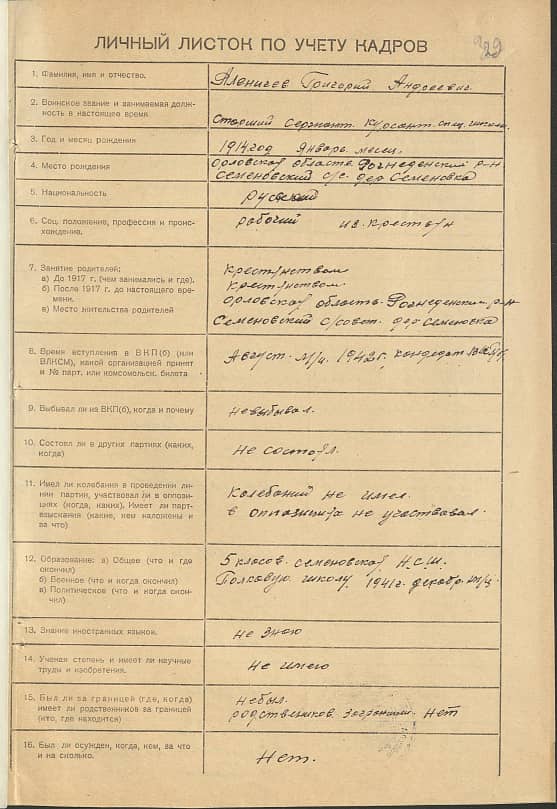 29
ЛИЧНЫЙ ЛИСТОК ПО УЧЕТУ КАДРОВ
1. Фамилия, имя и отчество.
Аленичев Григорий Андреевич
2. Воинское звание и занимаемая долж-
ность в настоящее время.
Старший Сержант. Курсант. спец. школы
3. Год и месяц рождения
1914 год Январь месяц.
4. Место рождения
Орловская область. Рогнеденский р-н
Семеновский с/с. дер Семеновка
5. Национальность
русский
6. Соц. положение, профессия и проис-
хождение.
рабочий из. крестян
7. Занятие родителей;
а) До 1917 г. (чем занимались и где).
б) После 1917 г. до настоящего вре-
мени.
в) Место жительства родителей
Крестянством
Крестянством
Орловская область. Рогнеденский р-н
Семеновский с/совет. дер Семеновка
8. Время вступления в ВКП(б) (или
ВЛКСМ), какой организацией принят
и № парт. или комсомольск. билета
Август. м/ц. 1942г. кондедат
9. Выбывал ли из ВКП(б), когда и почему
невыбывал.
10. Состоял ли в других партиях (каких,
когда)
Не состоял.
11. Имел ли колебания в проведении ли-
нии партии, участвовал ли в оппози-
циях (когда, каких). Имеет ли парт-
взыскания (какие, кем наложены и
за что)
Колебаний не имел.
в оппозициях не участвовал.
12. Образование: а) Общее (что и где
окончил)
б) Военное (что и когда окончил)
в) Политическое (что и когда окон-
чил)
5 класов. семеновской Н.С.Ш.
Полковую школу 1941г. декабрь м/ц.
13. Знание иностранных языков.
не знаю
14. Ученая степень и имеет ли научные
труды и изобретения.
не имею
15. Был ли за границей (где, когда)
имеет ли родственников за границей
(кто, где находится)
Небыл.
родствеников заграницей. Нет
16. Был ли осужден, когда, кем, за что
и на сколько.
Нет.